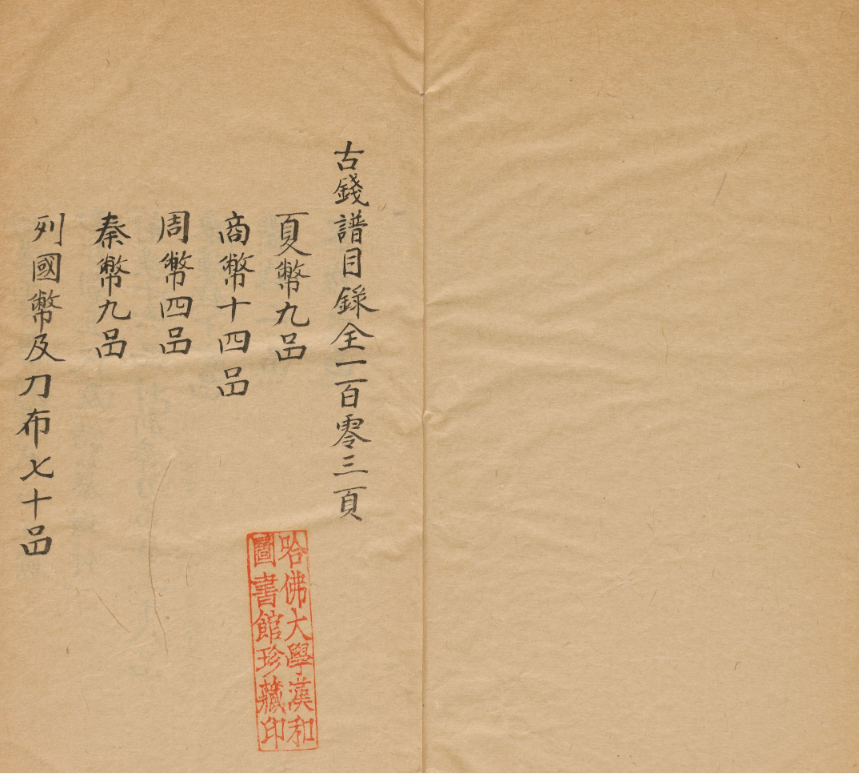 古錢譜目錄全一百零三頁
夏幣九品
商幣十四品
周幣四品
秦幣九品
列國幣及刀布七十品
哈佛大學漢和
圖書館珍藏印